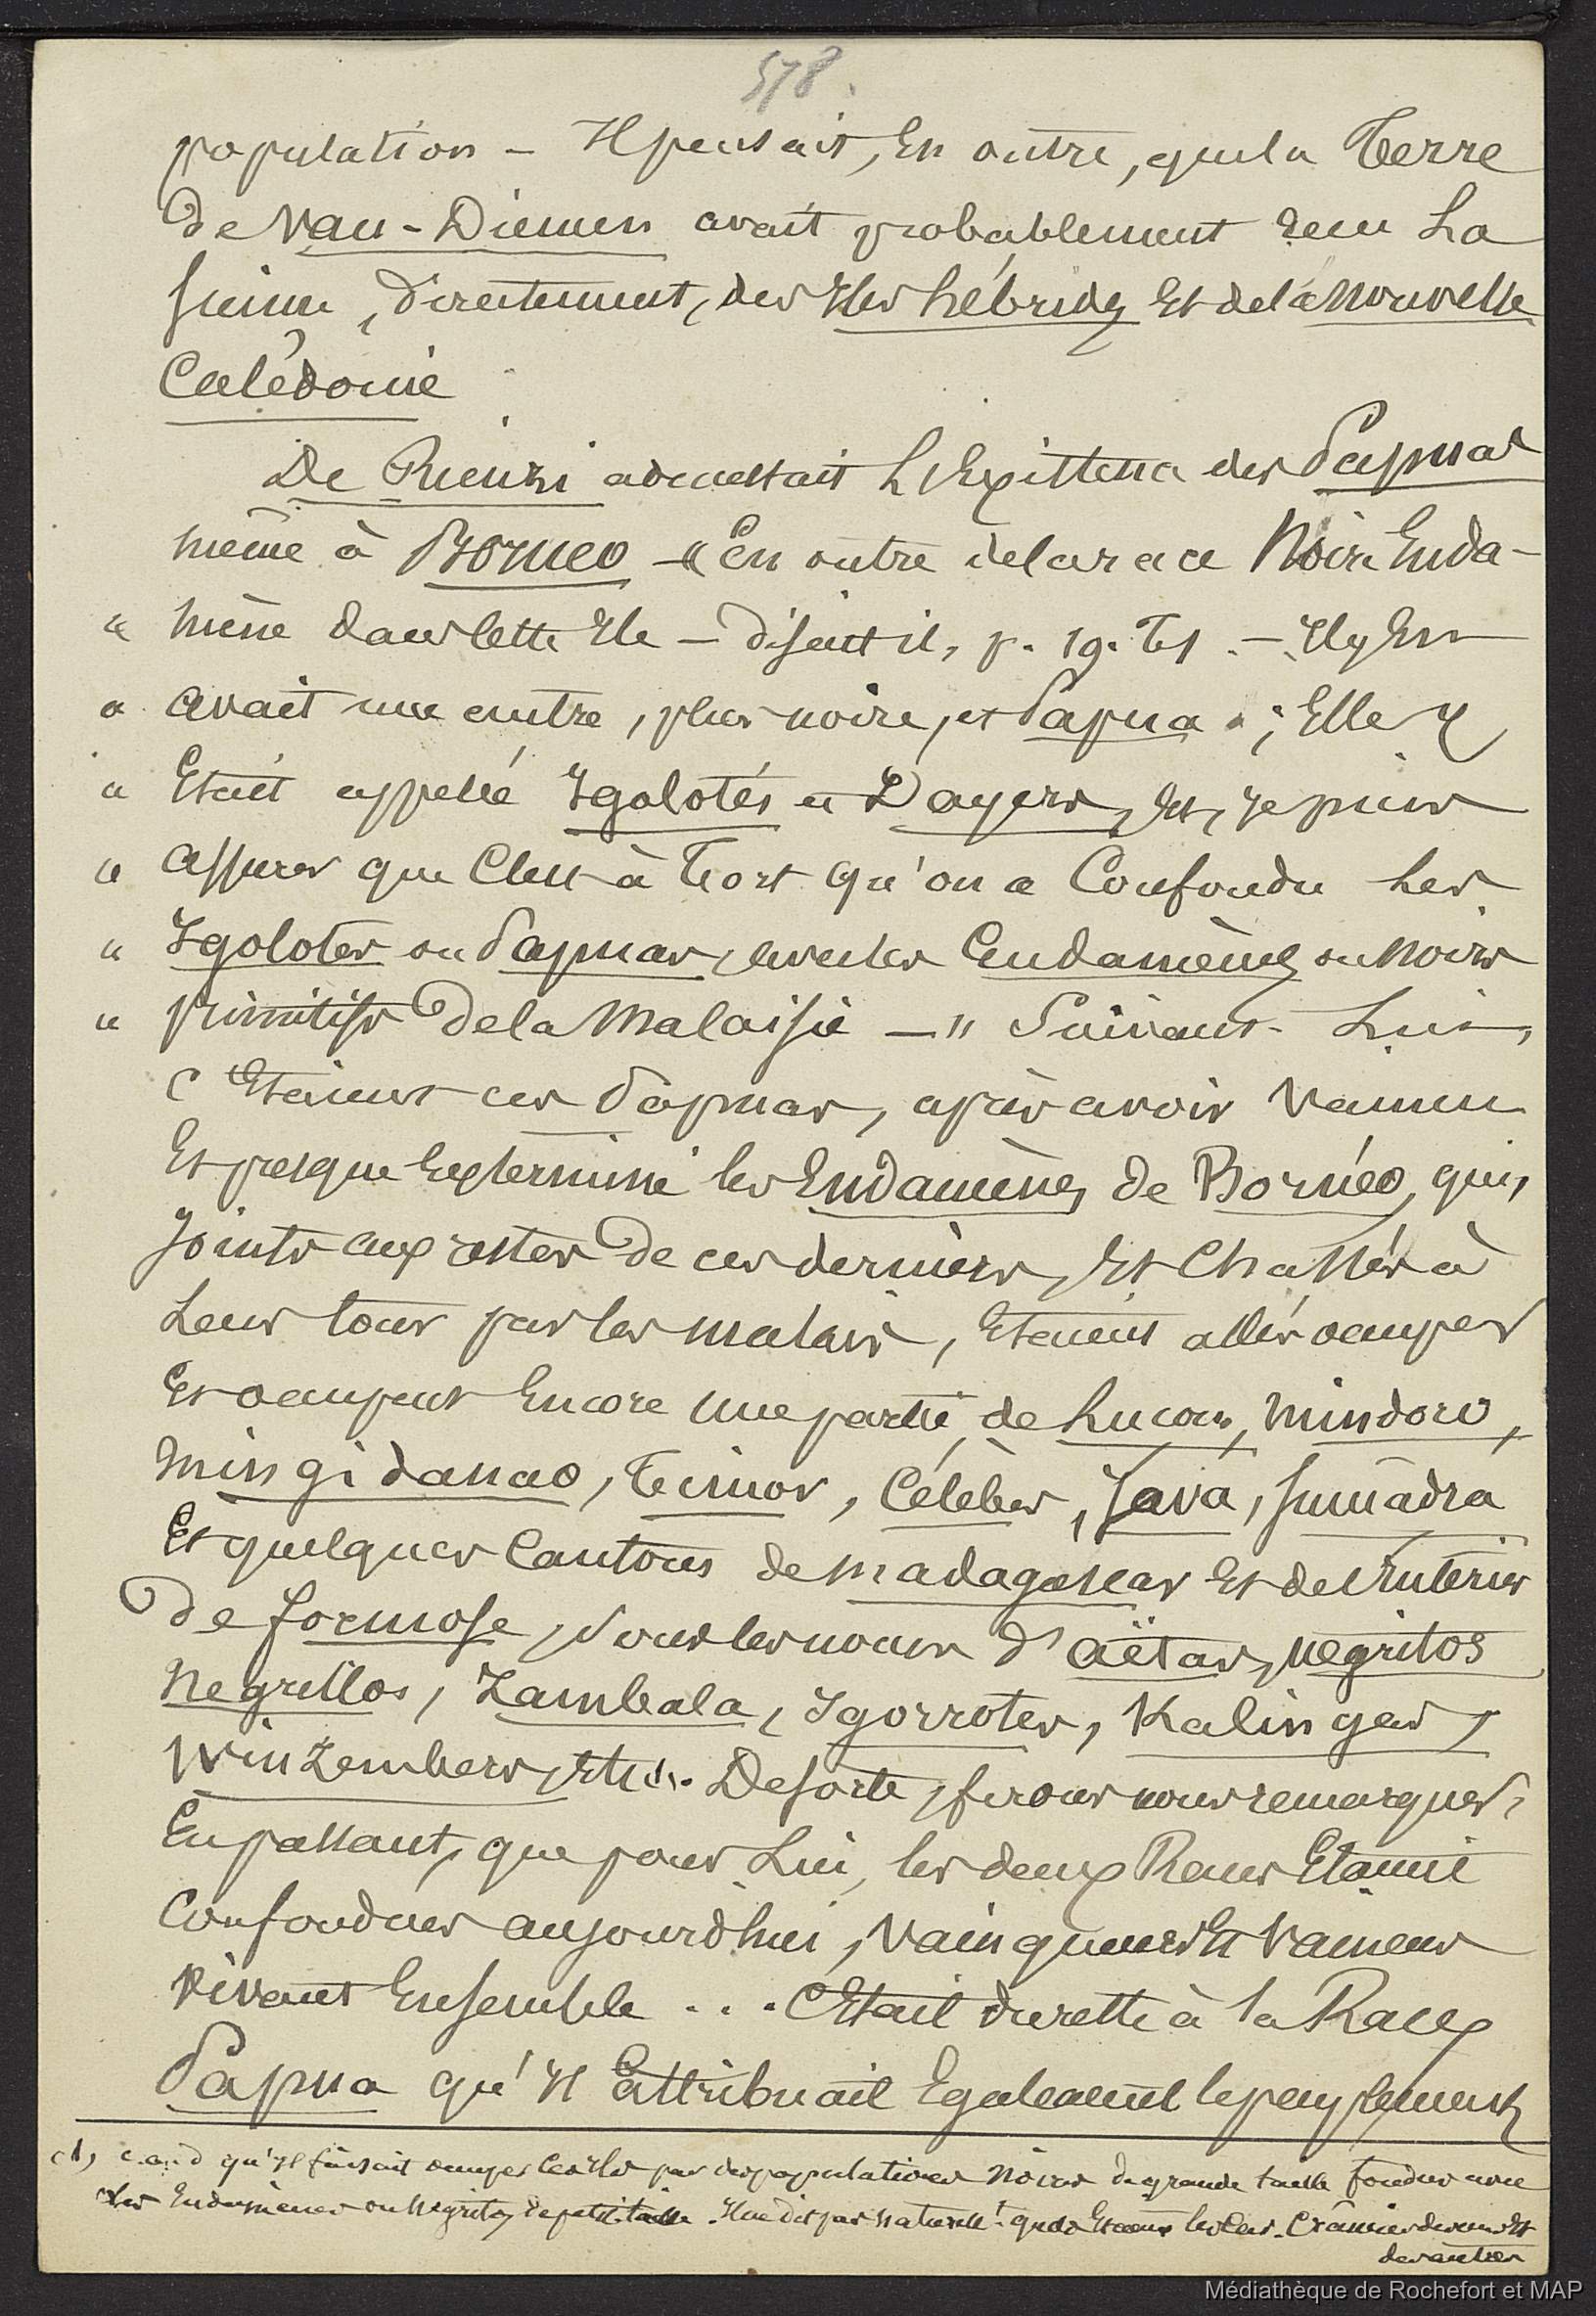 578.
population – Il pensait, En outre, que la Terre
De Van-Diemen avait probablement reçu La
sienne, directement, des Iles hébrides Et de la Nouvelle
Calédonie
De Rienzi admettait L'Existence des Papuas
même à Borneo – « En outre de la race Noire Enda-
« mène dans cette Ile – disait il, p. 19. T1. – Il y En
« avait une autre, plus noire, et Papua ; Elle y
« Etait appelée Igolotés et Dayers, Et, je puis
« assurer que C'est à Tort qu'on a Confondu Les
« Igolotes ou Papuas, avec les Endamènes ou Noirs
« primitifs De la Malaisie – " Suivant Lui,
C'Etaient ces Papuas, après avoir Vaincu
Et presque Exterminé les Endamènes de Bornéo, qui,
Joints aux restes De ces derniers, Et Chassés à
Leur tour par les malais, Etaient allés occuper
Et occupent Encore une partie de Luçon, Mindoro,
Mingidanao, Timor, Célèbes, Java, Sumadra
Et quelques Cantons de Madagascar Et de l'Intérieur
De formose, sous les noms d'aëtas, negritos
Negrillos, Zambala, Igorrotes, Kalingas,
Winzembers, Etc. De sorte, ferons nous remarquer,
En passant, que pour Lui, les deux Races Etaient
Confondues aujourd'hui, Vainqueurs Et Vaincus
Vivant Ensemble . . . C'Etait du reste à la Race
Papua qu'Il attribuait Egalement le peuplement
(1) c.a.d qu'Il faisait occuper ces Iles par des populations Noires de grande taille fondues avec
des Endamènes ou Negritos de petite taille. Il ne dit pas quels Etaient les Car. Crâniens des uns Et
des autres
Médiathèque de Rochefort et MAP